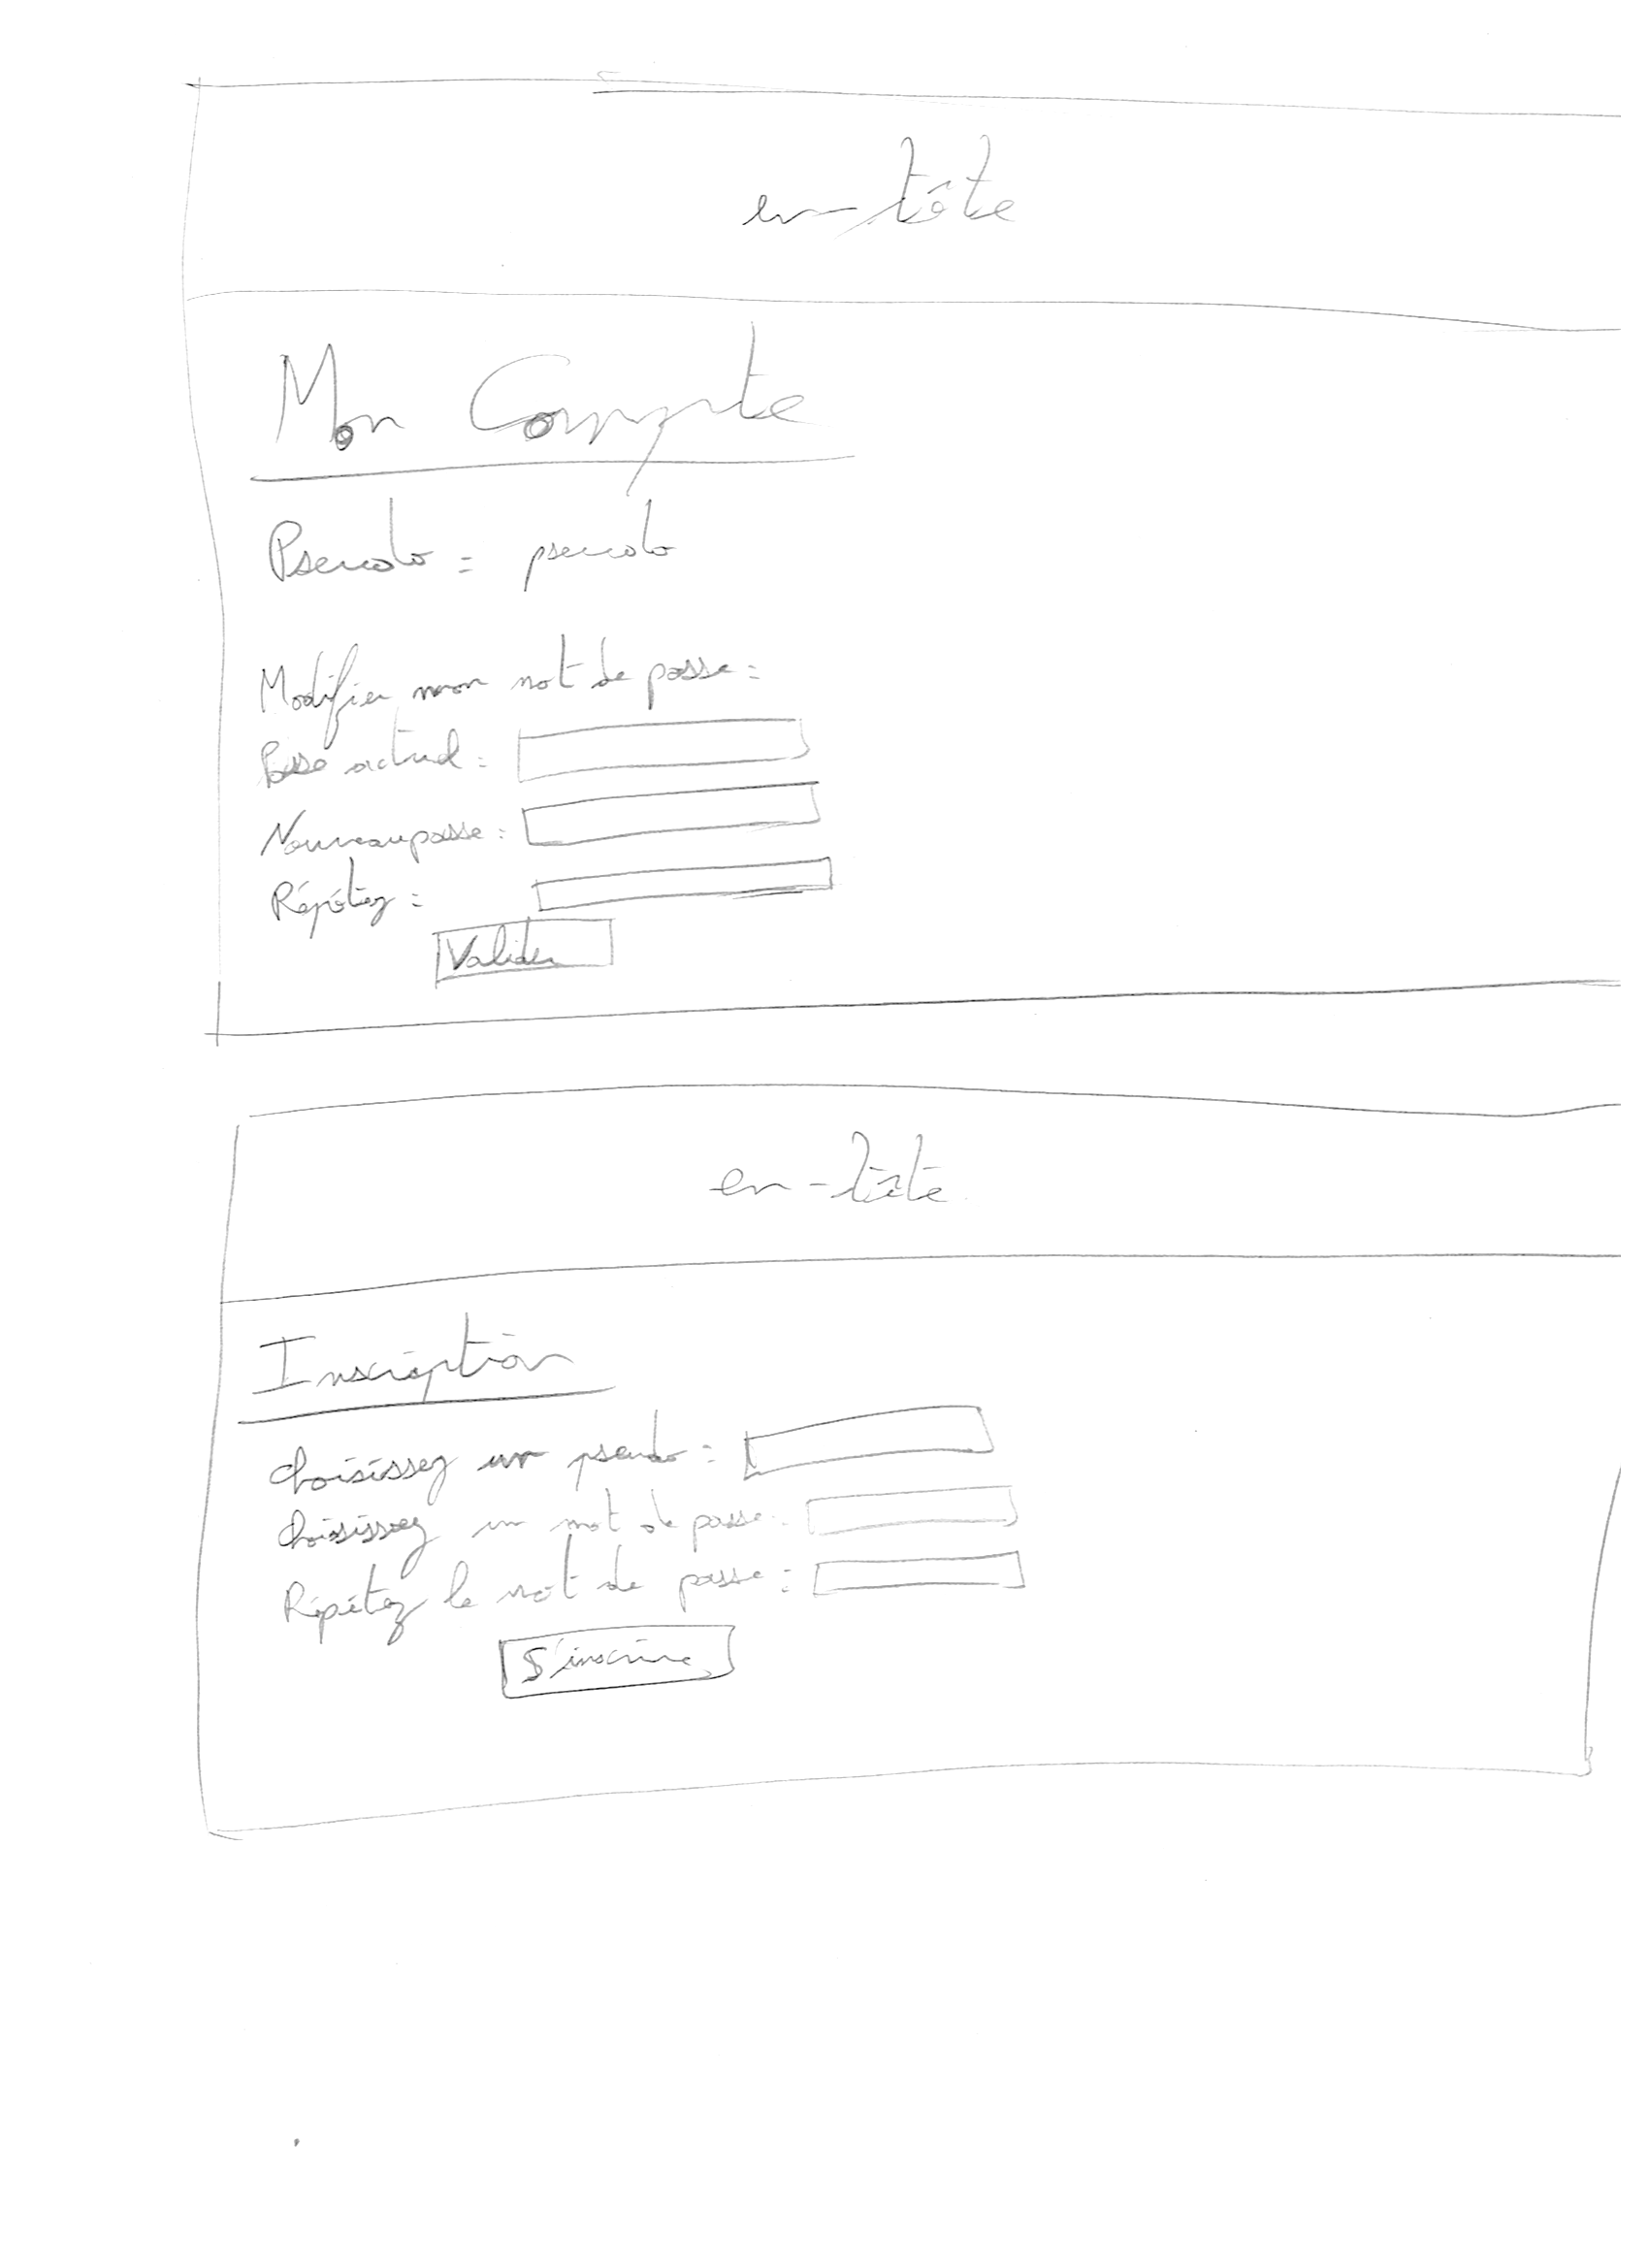 en-tête
Mon Compte
Pseudo : pseudo
Modifier mon mot de passe :
Passe actuel :
Nouveau passe :
Répétez :
Valider
en-tête
Inscription
Choisissez un pseudo :
Choisissez un mot de passe :
Répétez le mot de passe :
S'inscrire